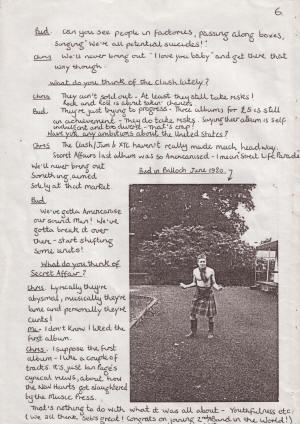 6.
Bud. Can you see people in factories, passing along boxes,
singing "We're all potential suicides!"
Chris We'll never bring out "I love you baby" and get there that
way though.
What do you think of the Clash lately?
Chris They ain't sold out - At least they still take risks!
Rock and roll is about taken' chances
Bud. They're just trying to progress - Three albums for £5 is still
an achievement - They do take risks. Saying their album is self
indulgent and too diverse - that's crap!
Have you any ambitions about the United States?
Chris The Clash/Jam & XTC haven't really made much headway.
Secret Affairs last album was so Americanised - I mean Street Life Parade
We'll never bring out
Something aimed
Solely at that market
Bud in Balloch June 1980.
Bud
We've gotta Americanise
our sound Men! We've
gotta break it over
there - start shifting
some units!
What do you think of
Secret Affair?
Chris. Lyrically they're
abysmal, musically they're
lame and personally they're
cunts!
Me - I don't know I liked the
first album.
Chris - I suppose the first
album - like a couple of
tracks. It's just Ian Page's
cynical views, about how
the New Hearts got slaughtered
by the Music Press.
That's nothing to do with what it was all about - Youthfulness etc.
(We all think Seb's great! Congrats on joining 2nd Best Band in the World!)